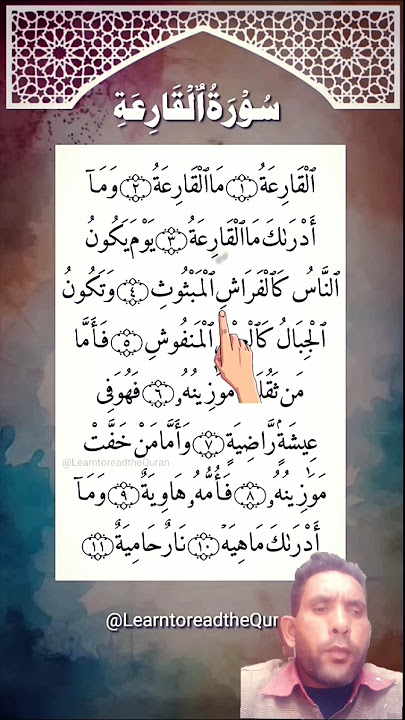 سُوْرَةُ الْقَارِعَةِ
ٱلْقَارِعَةُ ١ مَا ٱلْقَارِعَةُ ٢ وَمَآ
أَدْرَىٰكَ مَا ٱلْقَارِعَةُ ٣ يَوْمَ يَكُونُ
ٱلنَّاسُ كَٱلْفَرَاشِ ٱلْمَبْثُوثِ ٤ وَتَكُونُ
ٱلْجِبَالُ ٱلْمَنفُوشِ ٥ فَأَمَّا
مَن مَوَٰزِينُهُۥ ٦ فَهُوَ فِى
عِيشَةٍ رَّاضِيَةٍ ٧ وَأَمَّا مَنْ خَفَّتْ
@LearntoreadtheQuran
مَوَٰزِينُهُۥ ٨ فَأُمُّهُۥ هَاوِيَةٌ ٩ وَمَآ
أَدْرَىٰكَ مَا هِيَهْ ١٠ نَارٌ حَامِيَةٌ ١١
@LearntoreadtheQur